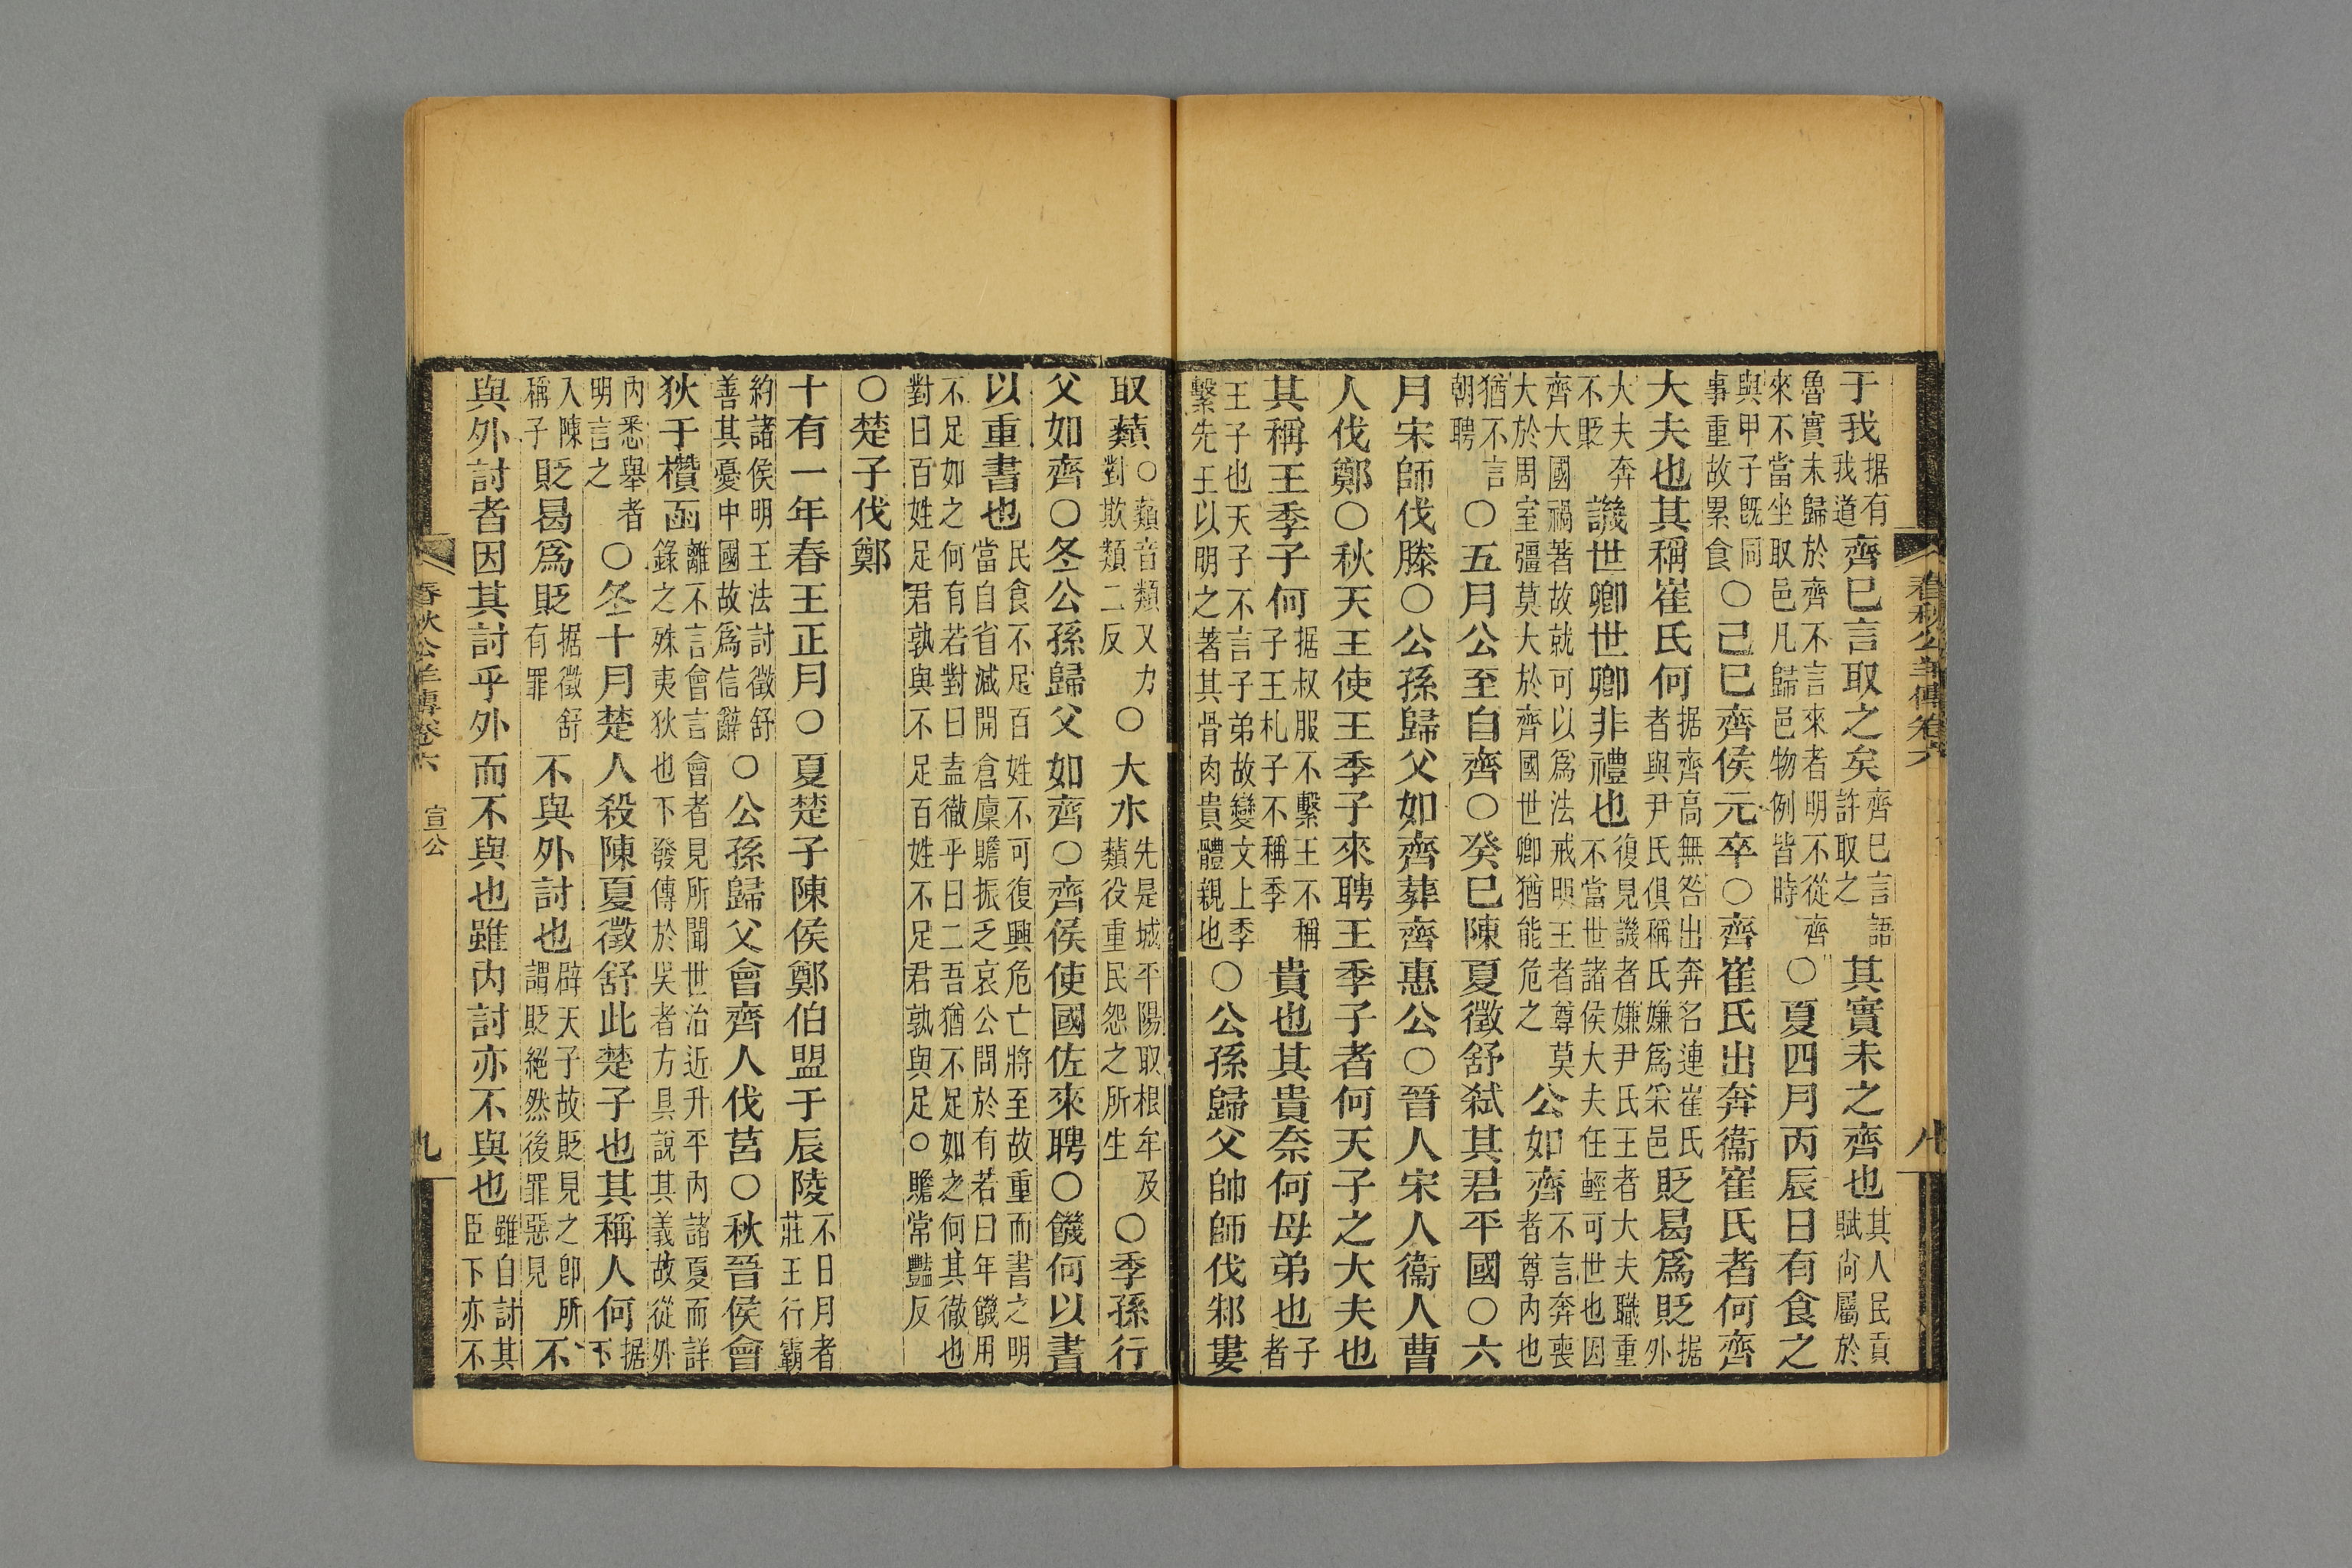 春秋公羊傳卷六
八
于我据有我道齊巳言取之矣齊巳言語許取之其實未之齊也其人民貢賦尚屬於
魯實未歸於齊不言來者明不從齊來不當坐取邑凡歸邑物例皆時○夏四月丙辰日有食之
與甲子既同事重故累食○己巳齊侯元卒○齊崔氏出奔衞崔氏者何齊
大夫也其稱崔氏何据齊高無咎出奔名連崔氏者與尹氏俱稱氏嫌爲采邑貶曷爲貶据外
大夫奔不貶譏世卿世卿非禮也復見譏者嫌尹氏王者大夫職重不當世諸侯大夫任輕可世也因
齊大國禍著故就可以爲法戒明王者尊莫大於周室彊莫大於齊國世卿猶能危之公如齊不言奔喪者尊內也
猶不言朝聘○五月公至自齊○癸巳陳夏徵舒弑其君平國○六
月宋師伐滕○公孫歸父如齊葬齊惠公○晉人宋人衞人曹
人伐鄭○秋天王使王季子來聘王季子者何天子之大夫也
其稱王季子何据叔服不繫王不稱子王札子不稱季貴也其貴奈何母弟也子者
王子也天子不言子弟故變文上季繫先王以明之著其骨肉貴體親也○公孫歸父帥師伐邾婁
取蘱○蘱音類又力對欺類二反○大水先是城平陽取根牟及蘱役重民怨之所生○季孫行
父如齊○冬公孫歸父如齊○齊侯使國佐來聘○饑何以書
以重書也民食不足百姓不可復興危亡將至故重而書之明當自省減開倉廩贍振乏哀公問於有若曰年饑用
不足如之何有若對曰盍徹乎曰二吾猶不足如之何其徹也對曰百姓足君孰與不足百姓不足君孰與足○贍常豔反
○楚子伐鄭
十有一年春王正月○夏楚子陳侯鄭伯盟于辰陵不日月者莊王行霸
約諸侯明王法討徵舒善其憂中國故爲信辭○公孫歸父會齊人伐莒○秋晉侯會
狄于欑函離不言會言會者見所聞世治近升平內諸夏而詳錄之殊夷狄也下發傳於吳者方具說其義故從外
內悉舉者明言之○冬十月楚人殺陳夏徵舒此楚子也其稱人何据下
入陳稱子貶曷爲貶据徵舒有罪不與外討也辟天子故貶見之卽所謂貶絕然後罪惡見不
與外討者因其討乎外而不與也雖內討亦不與也雖自討其臣下亦不
春秋公羊傳卷六
宣公
九